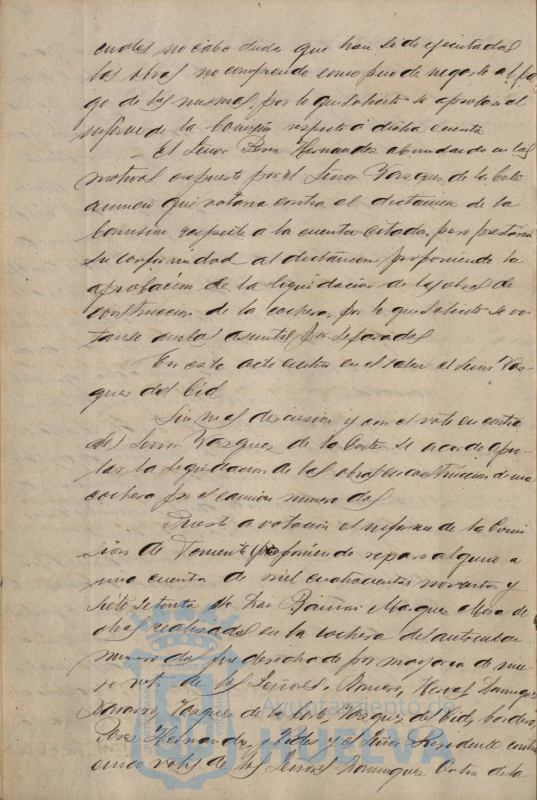 cuales no cabe duda que han sido ejecutadas
las obras no comprende como puede negarse al pa
go de las mismas, por lo que solicita se apruebe el
informe de la Comisión respecto a dicha cuenta.
El Señor Perez Hernandez abundando en los
motivos expuestos por el Señor Vazquez de la Corte
anuncia que votaria contra el dictamen de la
Comision respecto a la cuenta citada, pero prestaria
su conformidad al dictamen proponiendo la
aprobación de la liquidacion de las obras de
construccion de la cochera, por lo que solicita se vo-
tase ambos asuntos por separados
En este acto entra en el salon el Señor Vaz-
quez del Cid.
Sin mas discusion y con el voto en contra
del Señor Vazquez de la Corte se acordó apro-
bar la liquidacion de las obras en construccion de una
cochera por el camion numero dos
Puesto a votación el informe de la Comi
sión de Fomento proponiendo reparo alguno a
una cuenta de mil cuatrocientas noventa y
siete setenta de Don Ramon Marquez Mora de
obras realizadas en la cochera del auto
numero dos fue desechado por mayoria de nue
ve votos de los Señores Romero, Dominguez
Navarro, Vazquez de la Corte, Vazquez del Cid, Cordero
Perez Hernandez y el Señor Presidente contra
cinco votos de los Señores Dominguez de la
Ayuntamiento de
HUELVA